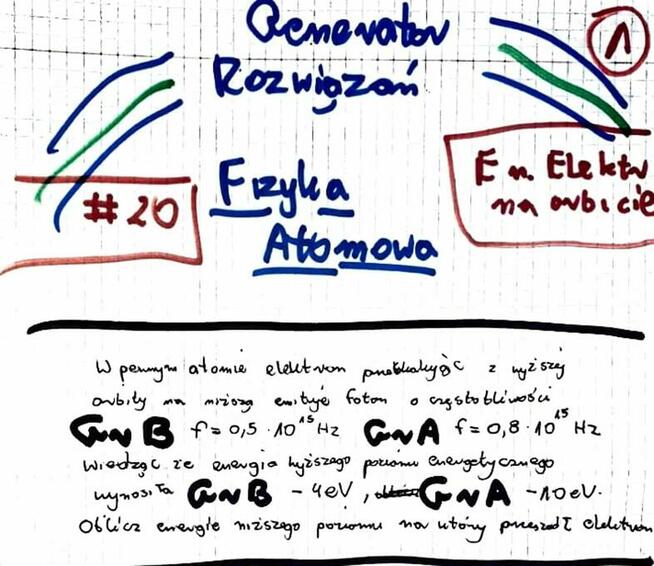 Generator
Rozwiązań
1
Fizyka
Atomowa
#20
En. Elektr
na orbicie
W pewnym atomie elektron przeskakując z wyższej
orbity na niższą emituje foton o częstotliwości
Gr B f = 0,5 · 10^15 Hz Gr A f = 0,8 · 10^15 Hz
Wiedząc że energia wyższego poziomu energetycznego
wynosiła Gr B - 4eV, Gr A - 10eV.
Oblicz energię niższego poziomu na który przeszedł elektron